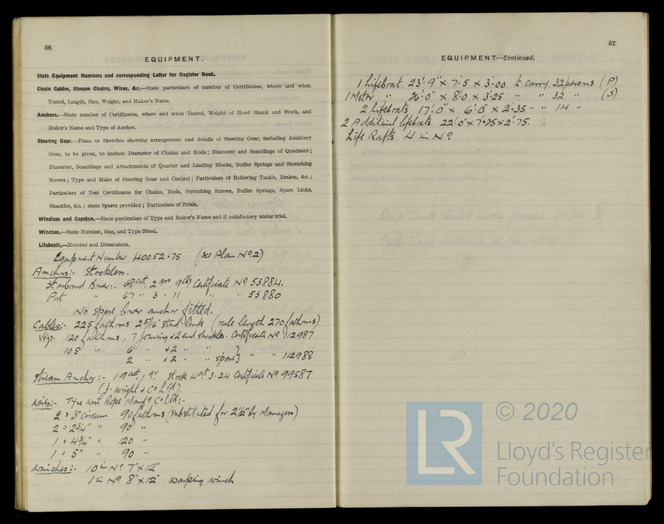 56
EQUIPMENT.
State Equipment Numbers and corresponding Letter for Register Book.
Chain Cables, Stream Chains, Wires, &c.—State particulars of number of Certificates, where and when
Tested, Length, Size, Weight, and Maker's Name.
Anchors.—State number of Certificates, where and when Tested, Weight of Head Shank and Stock, and
Maker's Name and Type of Anchor.
Steering Gear.—Plans or Sketches showing arrangement and details of Steering Gear, including Auxiliary
Gear, to be given, to include Diameter of Chains and Rods; Diameter and Scantlings of Quadrant;
Diameter, Scantlings and Attachments of Quarter and Leading Blocks, Buffer Springs and Stretching
Screws; Type and Make of Steering Gear and Control; Particulars of Relieving Tackle, Brakes, &c.;
Particulars of Test Certificates for Chains, Rods, Stretching Screws, Buffer Springs, Spare Links,
Shackles, &c.; state Spares provided; Particulars of Trials.
Windlass and Capstan.—State particulars of Type and Maker's Name and if satisfactory under trial.
Winches.—State Number, Size, and Type fitted.
Lifeboats.—Number and Dimensions.
Equipment Number 40052.75 (see Plan No 2)
Anchors:- Stockless.
Starboard Bower:- 68 cwt 2 qrs 9 lbs Certificate No 53884.
Port " 67 " 3 " 11 " " 53880
No spare bower anchor fitted.
Cables:- 225 fathoms 2 5/16 Stud link (rule length 270 fathoms)
120 fathoms, 7 joining &2 end shackles. Certificate No 112987
105 " 6 " &2 " "
2 " &2 " " spare " " 112988
Stream Anchor:- 19 cwt, 1 qr Stock 4 cwt. 3.24 Certificate No 99587
(J. Wright & Co Ltd)
Tyne Wire Rope Manfg Co Ltd:-
2 @ 3" Circum 90 fathoms (substituted for 2 1/2" by Managers)
2 @ 2 3/4" " 90 "
1 @ 4 3/4" " 120 "
1 @ 5" " 90 "
Winches:- 10 in No 7"x12"
1 in No 8"x12" Warping winch
57
EQUIPMENT—Continued.
1 Lifeboat 23'.9" x 7.5 x 3.00 to carry 32 persons (P)
1 Motor " 26'.0" x 8.0 x 3.25 " " 32 " (S)
2 Lifeboats 17'.0" x 6'.0" x 2.35 " " 14 "
2 Additional lifeboats 22'.0" x 7.25 x 2.75.
Life Rafts 4 in No.
© 2020
LR
Lloyd's Register
Foundation